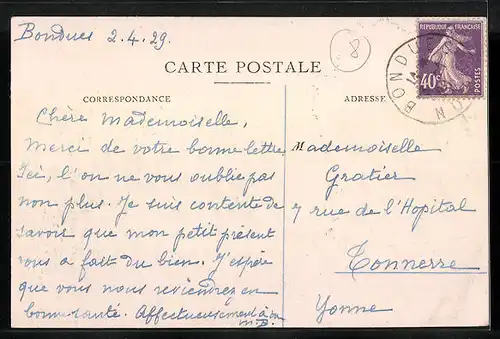 Bondues 2.4.29.
8
CARTE POSTALE
REPUBLIQUE FRANÇAISE
40c
POSTES
BONDU
N
CORRESPONDANCE
ADRESSE
Chère Mademoiselle,
Merci de votre bonne lettre
Ici, l'on ne vous oublie pas
non plus. Je suis contente de
savoir que mon petit présent
vous a fait du bien. J'espère
que vous nous reviendrez en
bonne santé. Affectueusement à
M.
Mademoiselle
Gratier
7 rue de l'Hopital
Tonnerre
Yonne